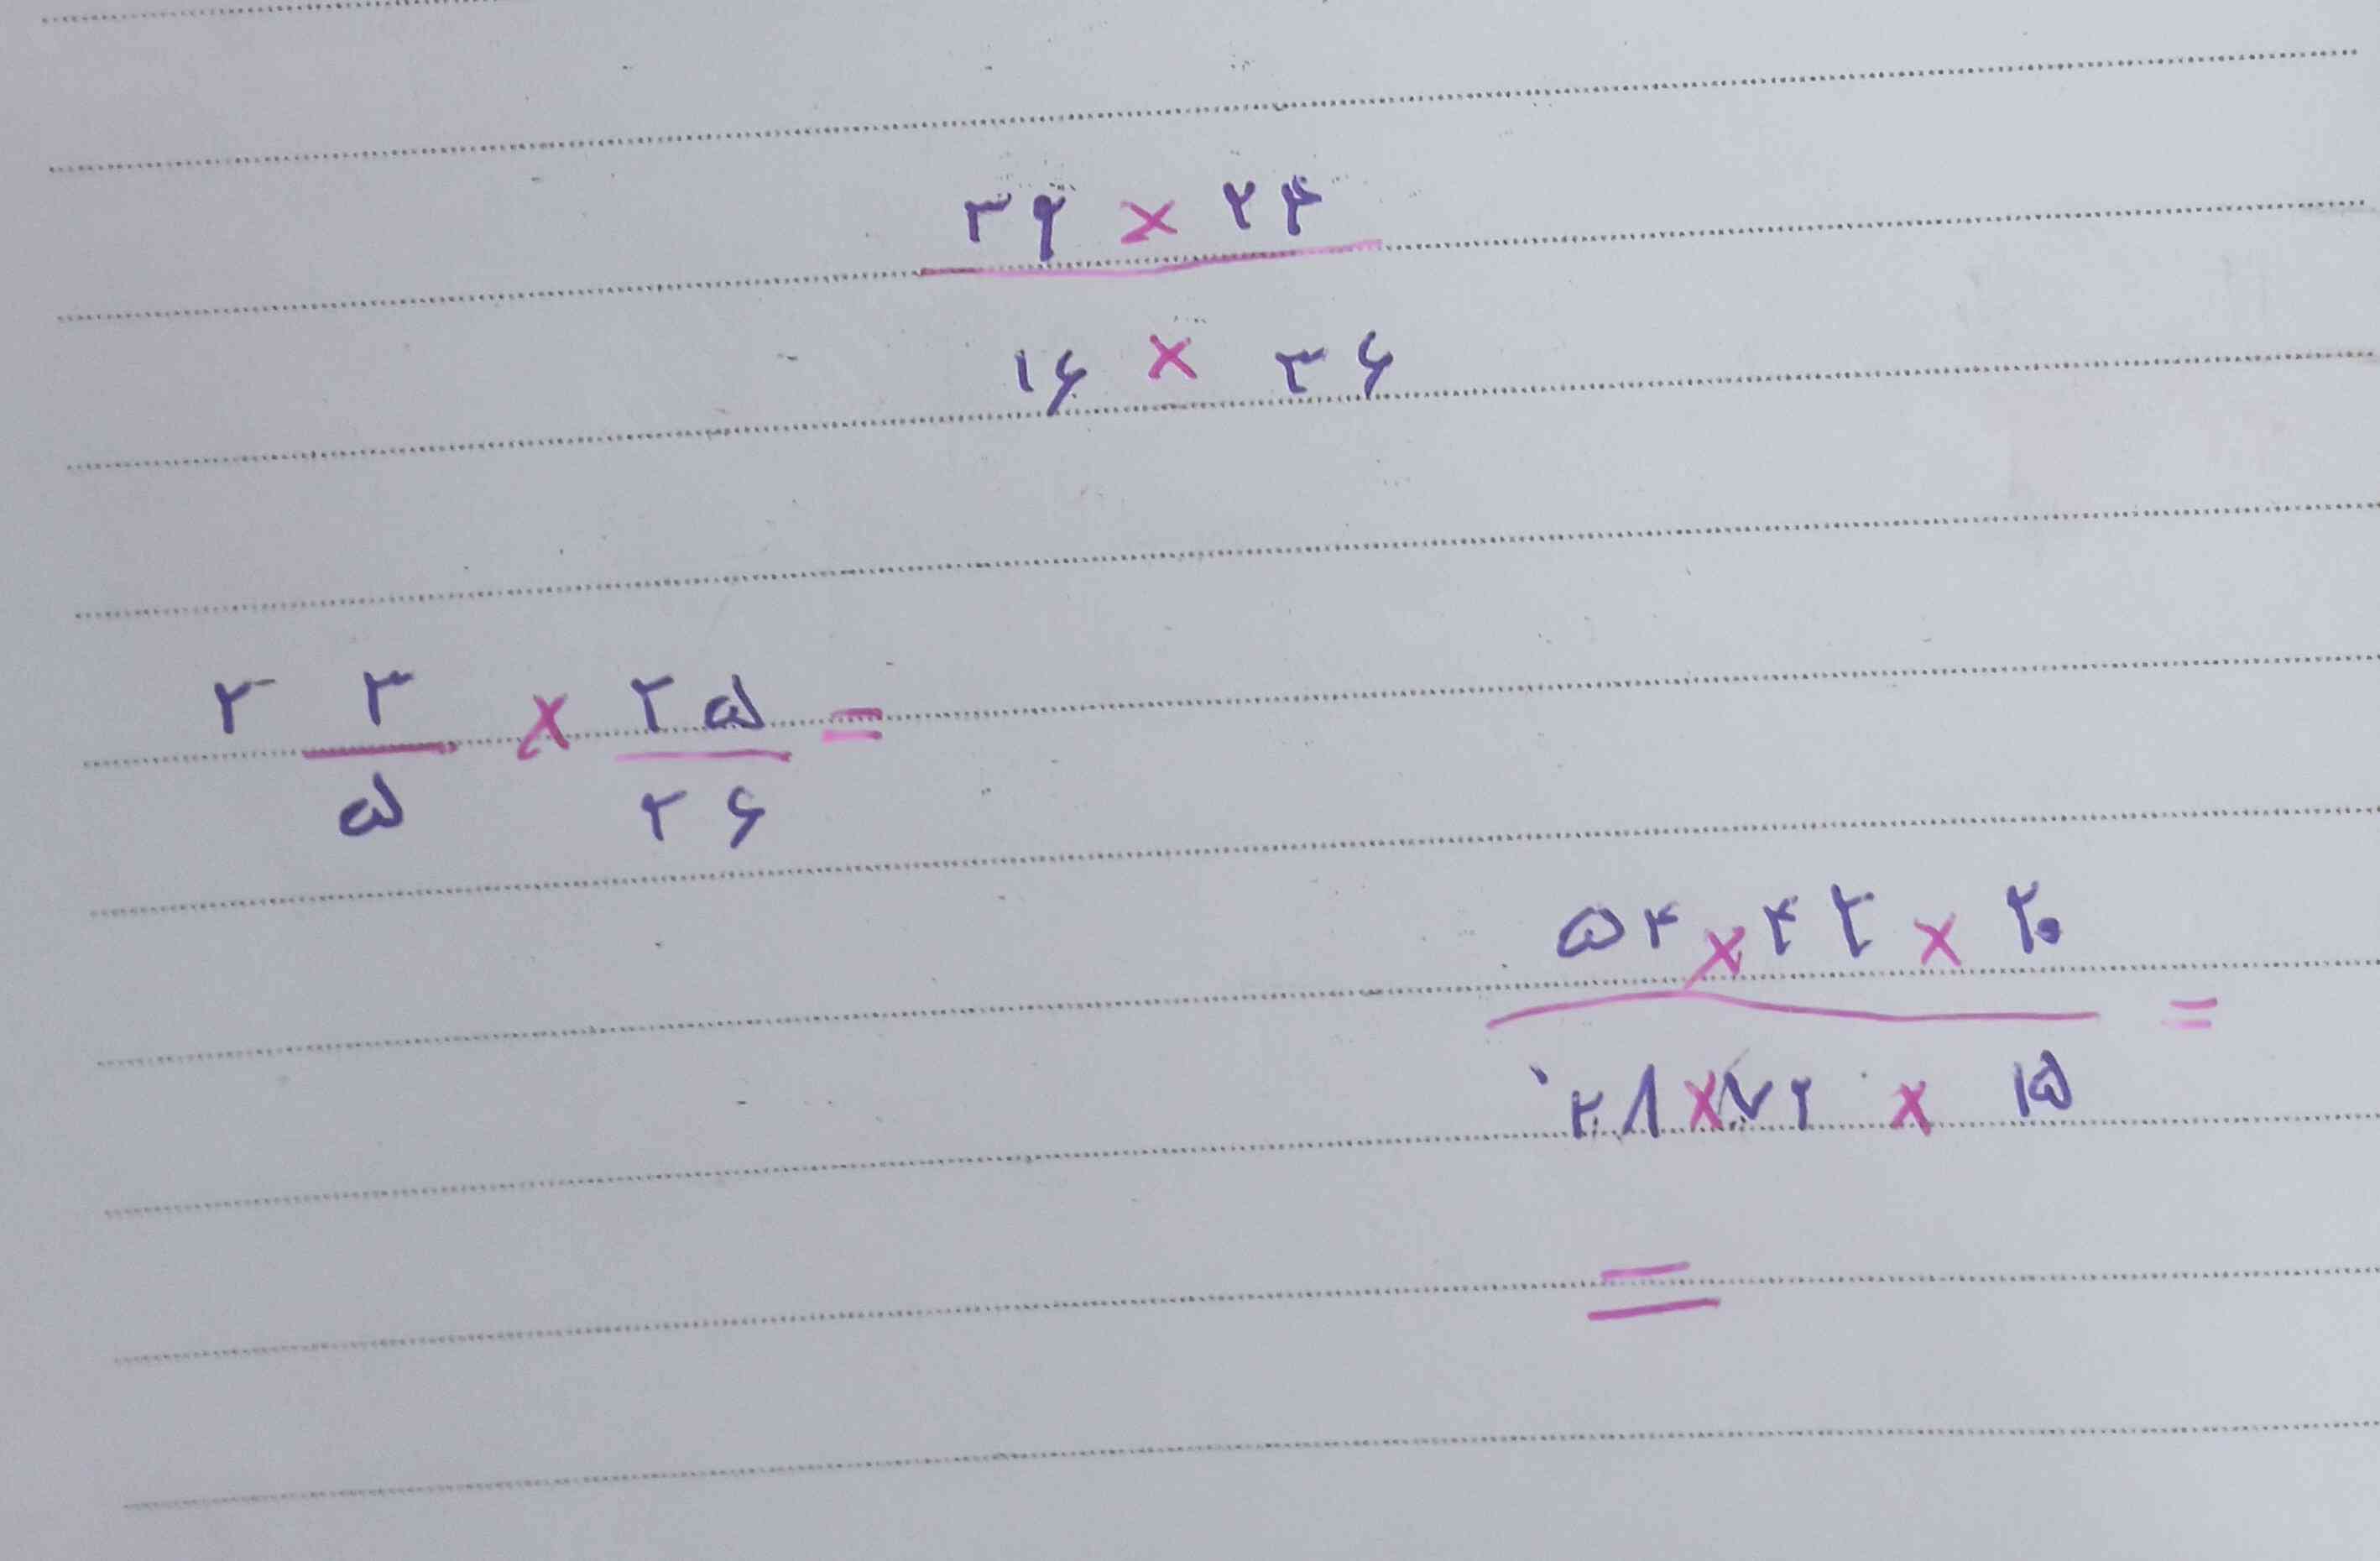 ۳۹ × ۲۴
۱۶ × ۳۶
۲ ۳ × ۲۵ =
۵ ۲۶
۵۴ × ۴۲ × ۲۰ =
۲۸ × ۷۲ × ۱۵
=